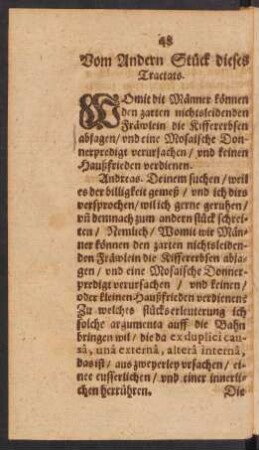 48
Vom Andern Stück dieses
Tractats.
WOmit die Männer können
den zarten nichtsleidenden
Fräwlein die Kiffererbsen
absagen/ vnd eine Mosaische Don-
nerpredigt verursachen/ vnd keinen
Haußfrieden verdienen.
Andreas. Deinem suchen/ weil
es der billigkeit gemeß/ vnd ich dirs
versprochen/ wil ich gerne geruhen/
vñ demnach zum andern stück schrei-
ten/ Nemlich/ Womit wir Män-
ner können den zarten nichtsleiden-
den Fräwlein die Kiffererbsen absa-
gen/ vnd eine Mosaische Donner-
predigt verursachen/ vnd keinen/
oder kleinen Haußfrieden verdienen?
Zu welches stücks erleuterung ich
solche argumenta auff die Bahn
bringen wil/ die da ex duplici cau-
sâ, unâ externâ, alterâ internâ,
das ist/ aus zweyerley vrsachen/ ei-
ner eusserlichen/ vnd einer innerli-
chen herrühren.
Die